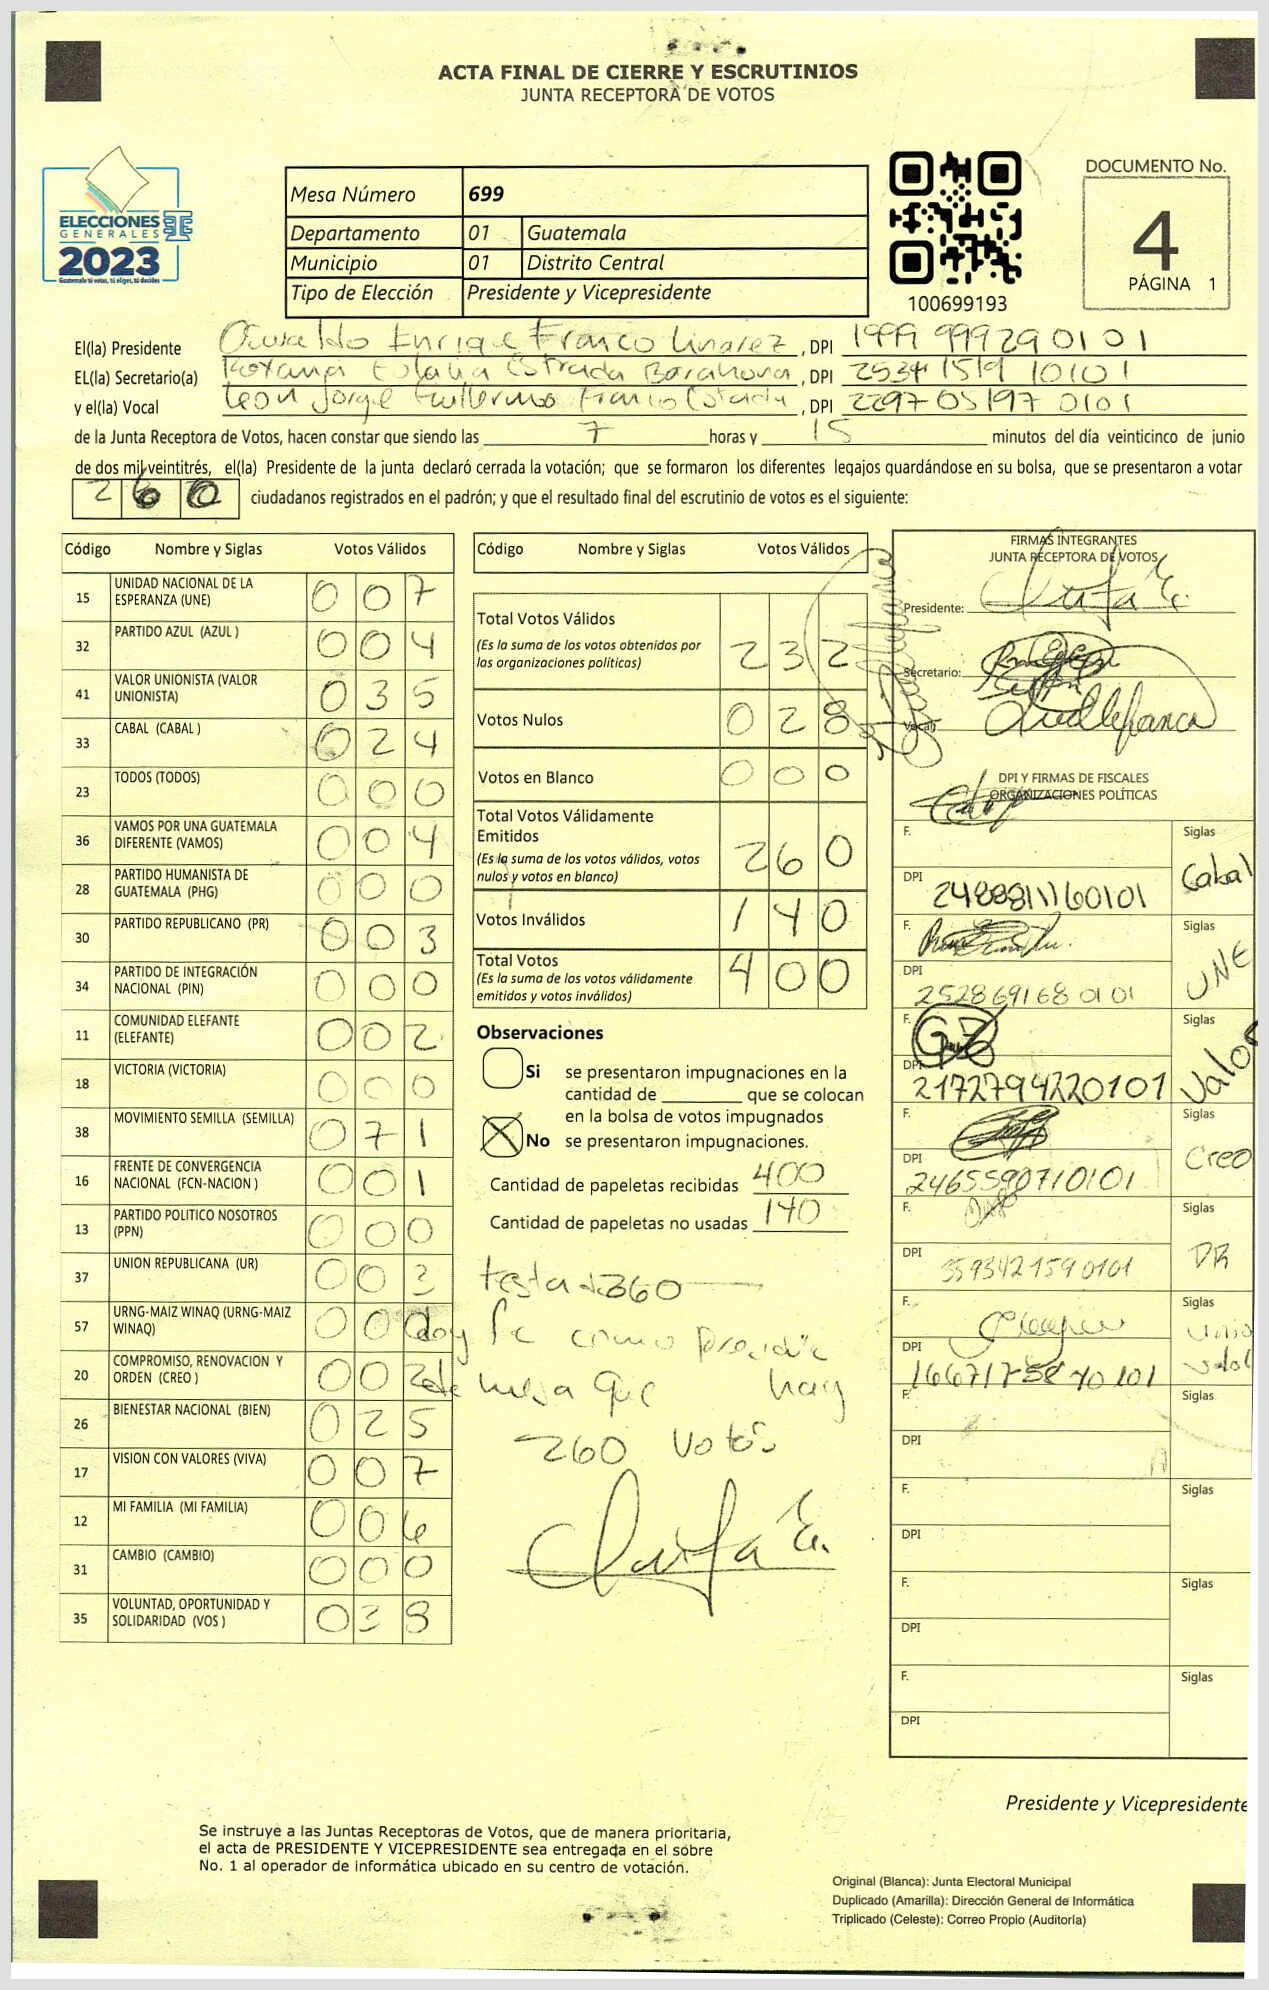 ACTA FINAL DE CIERRE Y ESCRUTINIOS
JUNTA RECEPTORA DE VOTOS
ELECCIONES
GENERALES
2023
Guatemala tú votas, tú eliges, tú decides
Mesa Número 699
Departamento 01 Guatemala
Municipio 01 Distrito Central
Tipo de Elección Presidente y Vicepresidente
100699193
DOCUMENTO No.
4
PÁGINA 1
El(la) Presidente Oswaldo Enrique Franco Linarez, DPI 1999 99929 0101
EL(la) Secretario(a) Roxana Eulalia Estrada Barahona, DPI 2534 1519 10101
y el(la) Vocal Leon Jorge Guillermo Franco Estrada, DPI 2297 05197 0101
de la Junta Receptora de Votos, hacen constar que siendo las 7 horas y 15 minutos del día veinticinco de junio
de dos mil veintitrés, el(la) Presidente de la junta declaró cerrada la votación; que se formaron los diferentes legajos guardándose en su bolsa, que se presentaron a votar
260 ciudadanos registrados en el padrón; y que el resultado final del escrutinio de votos es el siguiente:
Código Nombre y Siglas Votos Válidos
15 UNIDAD NACIONAL DE LA ESPERANZA (UNE) 0 0 7
32 PARTIDO AZUL (AZUL ) 0 0 4
41 VALOR UNIONISTA (VALOR UNIONISTA) 0 3 5
33 CABAL (CABAL ) 0 2 4
23 TODOS (TODOS) 0 0 0
36 VAMOS POR UNA GUATEMALA DIFERENTE (VAMOS) 0 0 4
28 PARTIDO HUMANISTA DE GUATEMALA (PHG) 0 0 0
30 PARTIDO REPUBLICANO (PR) 0 0 3
34 PARTIDO DE INTEGRACIÓN NACIONAL (PIN) 0 0 0
11 COMUNIDAD ELEFANTE (ELEFANTE) 0 0 2
18 VICTORIA (VICTORIA) 0 0 0
38 MOVIMIENTO SEMILLA (SEMILLA) 0 7 1
16 FRENTE DE CONVERGENCIA NACIONAL (FCN-NACION ) 0 0 1
13 PARTIDO POLITICO NOSOTROS (PPN) 0 0 0
37 UNION REPUBLICANA (UR) 0 0 3
57 URNG-MAIZ WINAQ (URNG-MAIZ WINAQ) 0 0 0
20 COMPROMISO, RENOVACION Y ORDEN (CREO ) 0 0 2
26 BIENESTAR NACIONAL (BIEN) 0 2 5
17 VISION CON VALORES (VIVA) 0 0 7
12 MI FAMILIA (MI FAMILIA) 0 0 6
31 CAMBIO (CAMBIO) 0 0 0
35 VOLUNTAD, OPORTUNIDAD Y SOLIDARIDAD (VOS ) 0 3 8
Código Nombre y Siglas Votos Válidos
Total Votos Válidos 2 3 2
(Es la suma de los votos obtenidos por las organizaciones políticas)
Votos Nulos 0 2 8
Votos en Blanco 0 0 0
Total Votos Válidamente Emitidos 2 6 0
(Es la suma de los votos válidos, votos nulos y votos en blanco)
Votos Inválidos 1 4 0
Total Votos 4 0 0
(Es la suma de los votos válidamente emitidos y votos inválidos)
Observaciones
Si se presentaron impugnaciones en la
cantidad de ________ que se colocan
en la bolsa de votos impugnados
No se presentaron impugnaciones.
Cantidad de papeletas recibidas 400
Cantidad de papeletas no usadas 140
doy fe como
mesa que hay
260 votos
FIRMAS INTEGRANTES
JUNTA RECEPTORA DE VOTOS
Presidente:
Secretario:
Vocal:
DPI Y FIRMAS DE FISCALES
ORGANIZACIONES POLÍTICAS
F. Siglas Cabal
DPI 2488811160101
F. Siglas UNE
DPI 252869168 0101
F. Siglas Valor
DPI 2172794220101
F. Siglas Creo
DPI 2465590710101
F. Siglas PR
DPI 3593421590101
F. Siglas
DPI
F. Siglas
DPI
F. Siglas
DPI
F. Siglas
DPI
F. Siglas
DPI
Presidente y Vicepresidente
Se instruye a las Juntas Receptoras de Votos, que de manera prioritaria,
el acta de PRESIDENTE Y VICEPRESIDENTE sea entregada en el sobre
No. 1 al operador de informática ubicado en su centro de votación.
Original (Blanca): Junta Electoral Municipal
Duplicado (Amarilla): Dirección General de Informática
Triplicado (Celeste): Correo Propio (Auditoría)